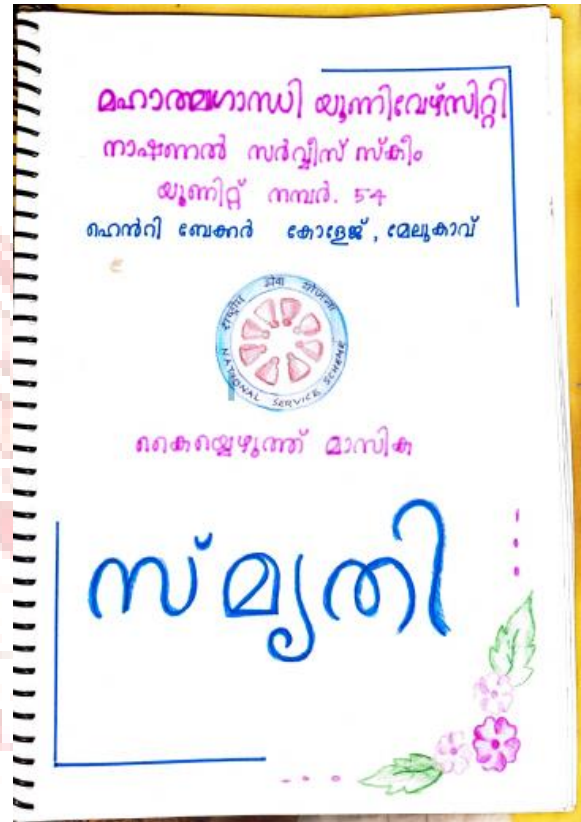 മഹാത്മഗാന്ധി യൂണിവേഴ്സിറ്റി
നാഷണൽ സർവ്വീസ് സ്കീം
യൂണിറ്റ് നമ്പർ. 54
ഹെൻറി ബേക്കർ കോളേജ്, മേലുകാവ്
राष्ट्रीय सेवा योजना
NATIONAL SERVICE SCHEME
കൈയ്യെഴുത്ത് മാസിക
സ്മൃതി